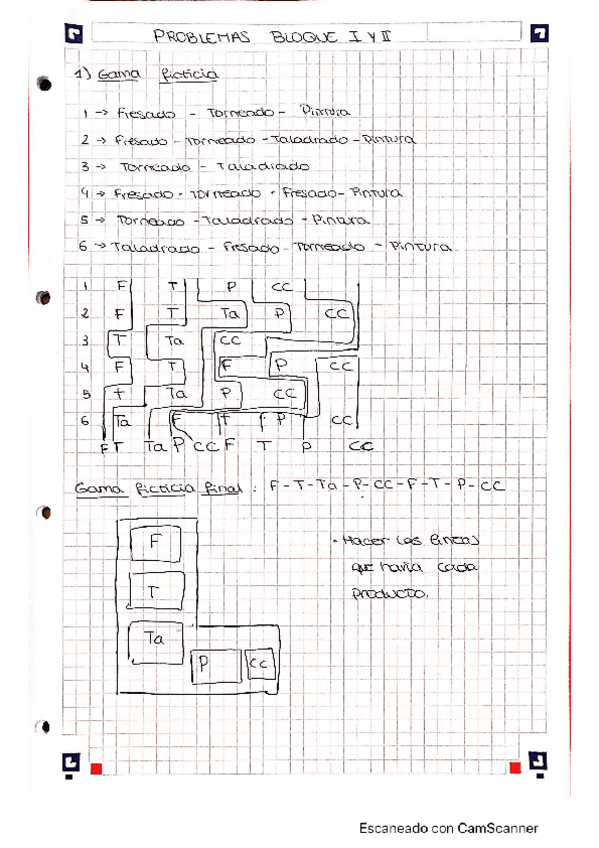 PROBLEMAS BLOQUE I Y II
1) Gama ficticia
1 → Fresado - Torneado - Pintura
2 → Fresado - Torneado - Taladrado - Pintura
3 → Torneado - Taladrado
4 → Fresado - Torneado - Fresado - Pintura
5 → Torneado - Taladrado - Pintura
6 → Taladrado - Fresado - Torneado - Pintura
1 F T P CC
2 F T Ta P CC
3 T Ta CC
4 F T F P CC
5 t Ta P CC
6 Ta F T P CC
F T Ta P CC F T P CC
Gama ficticia final: F - T - Ta - P - CC - F - T - P - CC
F
T
Ta
P CC
· Hacer las líneas
que haría cada
producto.
Escaneado con CamScanner